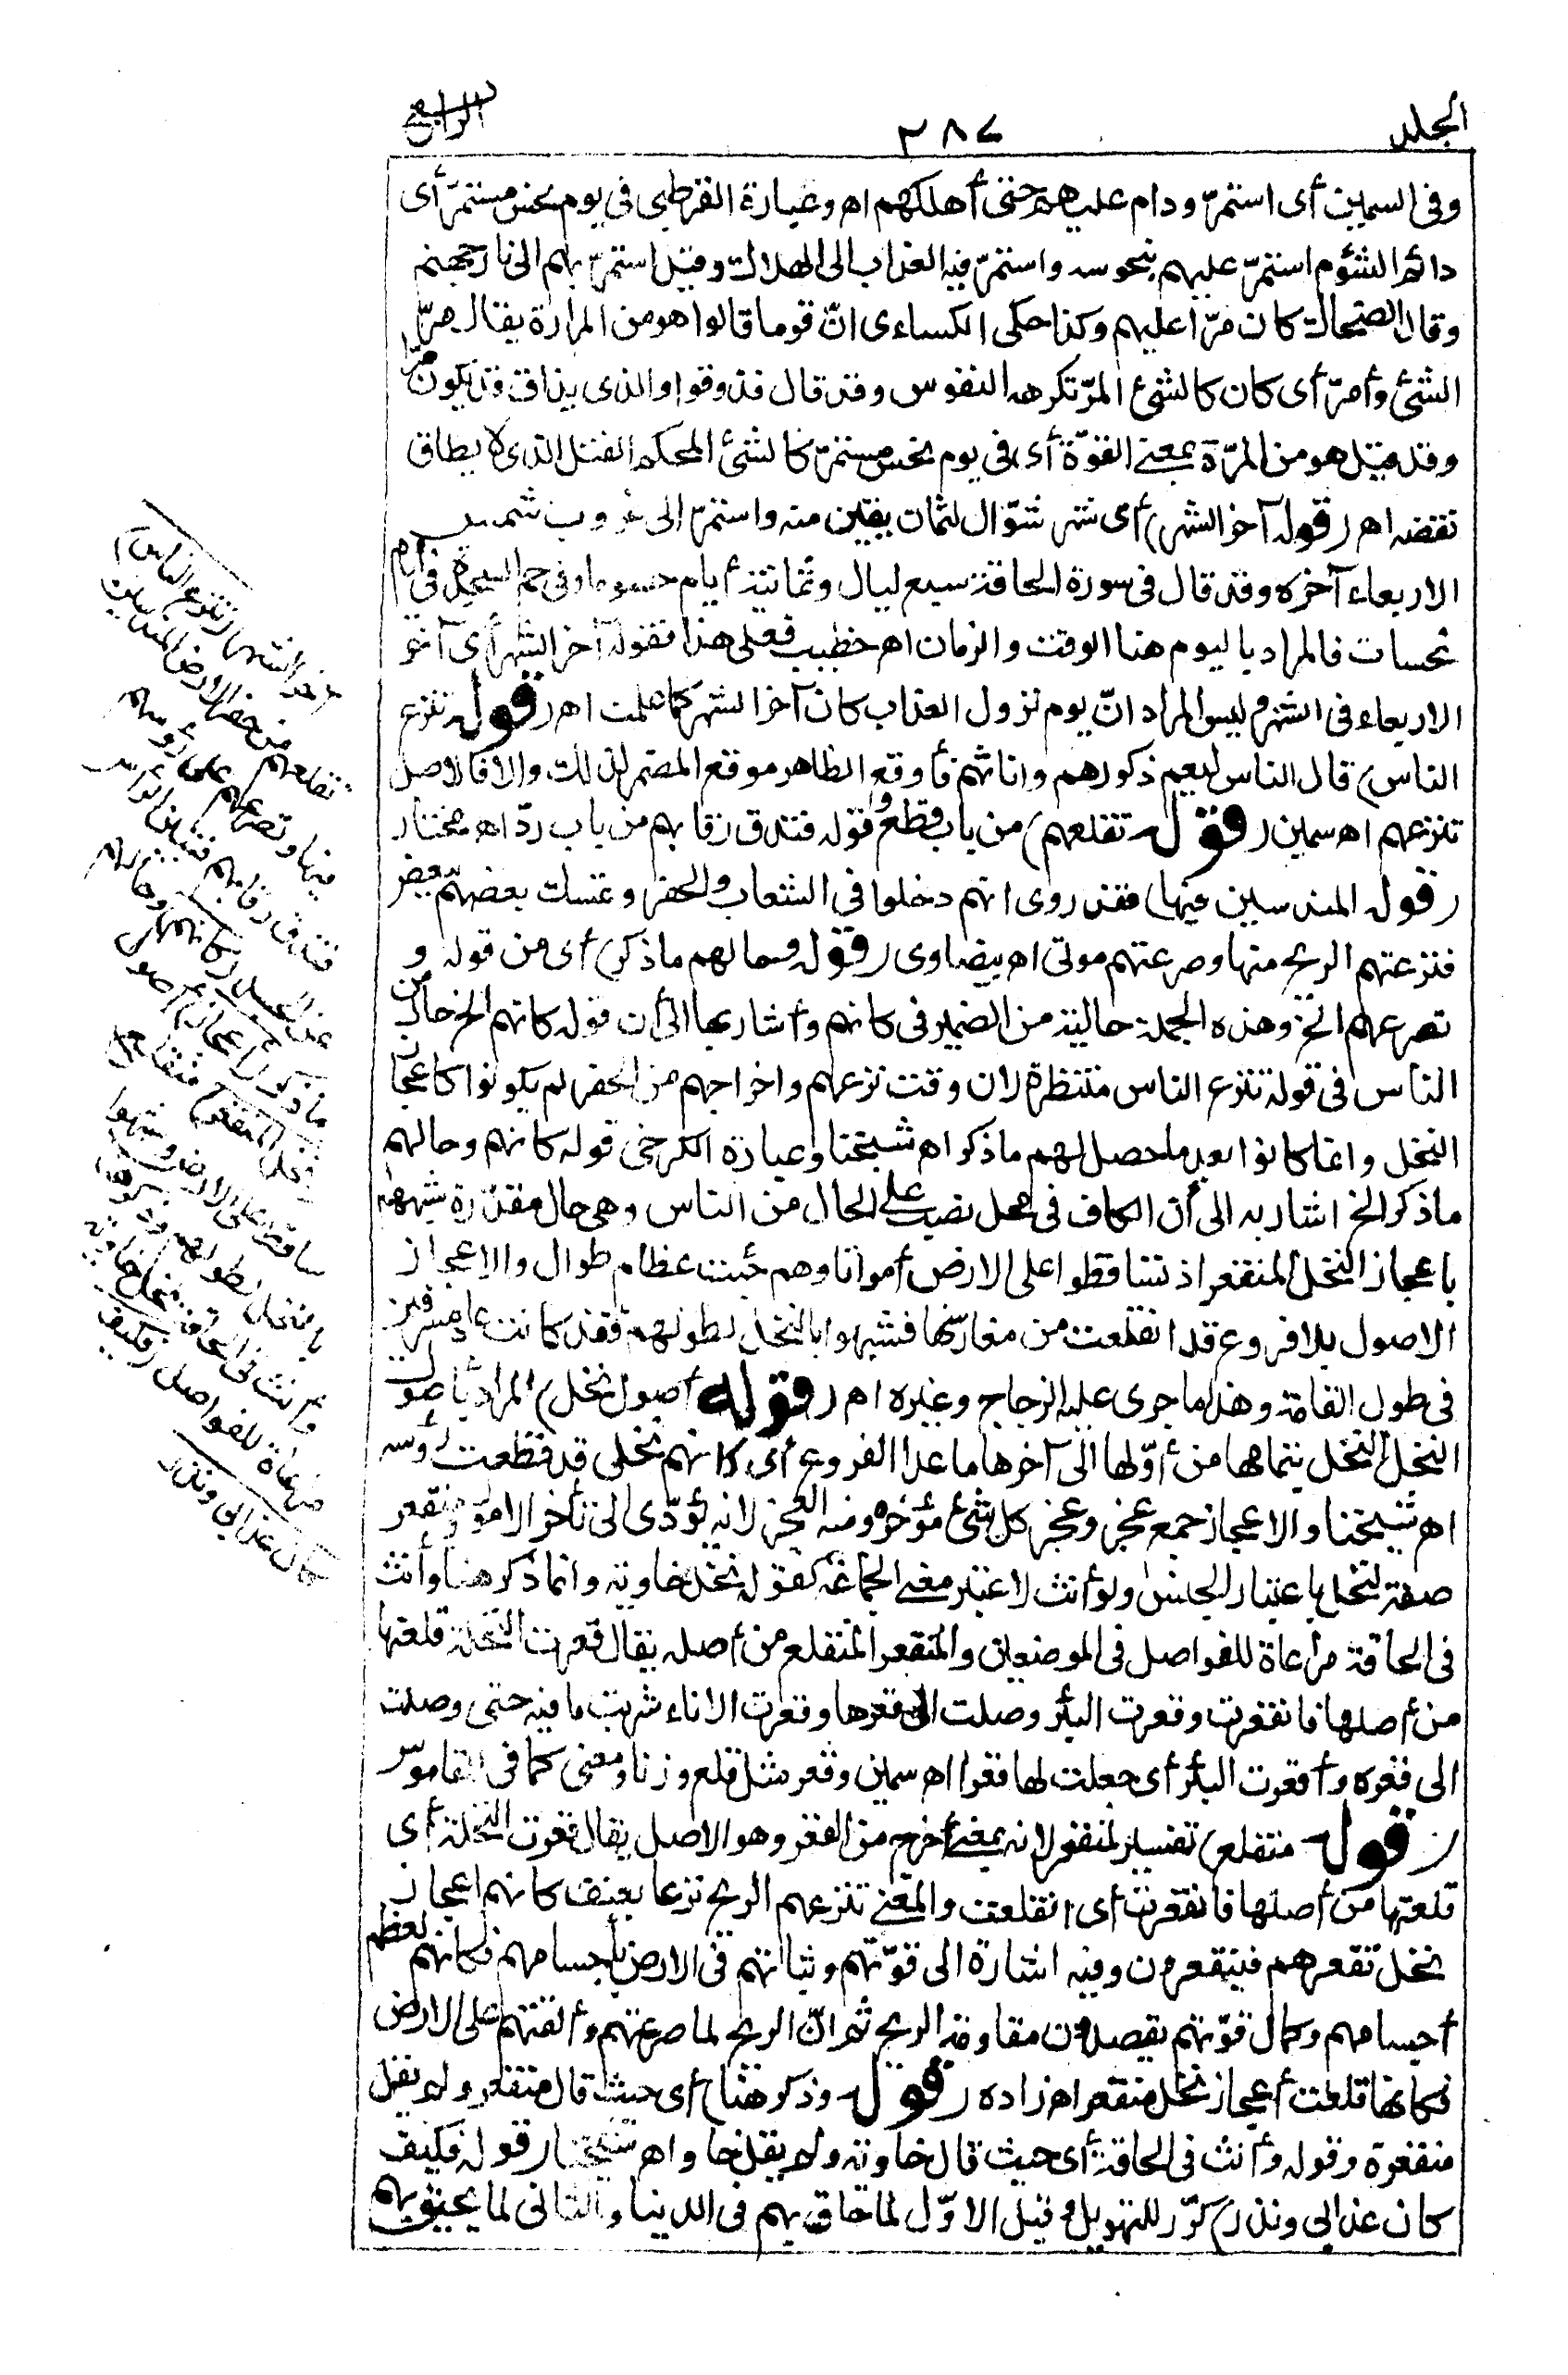 المجلد
٣٨٧
الرابع
وفى السمين أى استمرّ ودام عليهم حتى أهلكهم اه وعبارة القرطبى فى يوم نحس مستمرّ أى
دائم الشؤم استمرّ عليهم بنحوسه واستمرّ فيه العذاب الى الهلاك وقيل استمرّ بهم الى نار جهنم
وقال الضحاك كان مرّا عليهم وكذا حكى الكساءى انّ قوما قالوا هو من المرارة يقال مرّ
الشئ وأمرّ أى كان كالشئ المرّ تكرهه النفوس وقد قال فذوقوا والذى يذاق قد يكون مرّا
وقد قيل هو من المرّة بمعنى القوّة أى فى يوم نحس مستمرّ كالشئ المحكم الفتل الذى لا يطاق
نقضه اه (قوله آخر الشهر) أى شهر شوّال لثمان بقين منه واستمرّ الى غروب شمس
الاربعاء آخره وقد قال فى سورة الحاقة سبع ليال وثمانية أيام حسوما وفى حم السجدة فى أيام
نحسات فالمراد باليوم هنا الوقت والزمان اه خطيب فعلى هذا فقوله آخر الشهر أى آخر
الاربعاء فى الشهر وليس المراد انّ يوم نزول العذاب كان آخر الشهر كما علمت اه (قوله تنزع
الناس) قال الناس ليعم ذكورهم واناثهم فأوقع الظاهر موقع المضمر لذلك والا فالاصل
تنزعهم اه سمين (قوله تقلعهم) من باب قطع وقوله فتدق رقابهم من باب ردّ اه مختار
(قوله المندسين فيها) فقد روى انهم دخلوا فى الشعاب والحفر وتمسك بعضهم ببعض
فنزعتهم الريح منها وصرعتهم موتى اه بيضاوى (قوله وحالهم ماذكر) أى من قوله و
تصرعهم الخ وهذه الجملة حالية من الضمير فى كانهم وأشار بها الى أن قوله كانهم الخ حال من
الناس فى قوله تنزع الناس منتظرة لان وقت نزعهم واخراجهم من الحفر لم يكونوا كاعجاز
النخل وانما كانوا بعد ما حصل لهم ماذكر اه شيخنا وعبارة الكرخى قوله كانهم وحالهم
ماذكر الخ اشار به الى أن الكاف فى محل نصب على الحال من الناس وهى حال مقدّرة شبههم
باعجاز النخل المنقعر اذ تساقطوا على الارض أمواتا وهم جثث عظام طوال والاعجاز
الاصول بلا فروع قد انقلعت من مغارسها فشبهوا بالنخل لطولهم فقد كانت عاد مشرفين
فى طول القامة وهذا ما جرى عليه الزجاج وغيره اه (قوله أصول نخل) المراد بأصول
النخل النخل بتمامها من أوّلها الى آخرها ما عدا الفروع أى كانهم نخل قد قطعت رؤسه
اه شيخنا والاعجاز جمع عجز وعجز كل شئ مؤخره ومنه العجز لانه يؤدّى الى تأخر الامور ومنقعر
صفة لنخل باعتبار الجنس ولو أنث لاعتبر معنى الجماعة كقوله نخل خاوية وانما ذكر هنا وأنث
فى الحاقة مراعاة للفواصل فى الموضعين والمنقعر المنقلع من أصله يقال قعرت النخلة قلعتها
من أصلها فانقعرت وقعرت البئر وصلت الى قعرها وقعرت الاناء شربت ما فيه حتى وصلت
الى قعره وأقعرت البئر أى جعلت لها قعرا اه سمين وقعر مثل قلع وزنا ومعنى كما فى القاموس
(قوله منقلع) تفسير لمنقعر لانه بمعنى أخرج من القعر وهو الاصل يقال قعرت النخلة أى
قلعتها من أصلها فانقعرت أى انقلعت والمعنى تنزعهم الريح نزعا بعنف كانهم اعجاز
نخل تقعرهم فينقعرون وفيه اشارة الى قوّتهم وثباتهم فى الارض بأجسامهم فكانهم لعظم
أجسامهم وكمال قوّتهم يقصدون مقاومة الريح ثم انّ الريح لما صرعتهم وألقتهم على الارض
فكانها قلعت أعجاز نخل منقعر اه زاده (قوله وذكر هنا) أى حيث قال منقعر ولم يقل
منقعرة وقوله وأنث فى الحاقة أى حيث قال خاوية ولم يقل خاو اه شيخنا (قوله فكيف
كان عذابى ونذر) كرّر للتهويل وقيل الاوّل لما حاق بهم فى الدنيا والثانى لما يحيق بهم
آخر الشهر (تنزع الناس)
تقلعهم من حفر الارض المندسين
فيها وتصرعهم على رؤسهم
فتدق رقابهم فتبين الرأس
عن الجسد (كانهم) وحالهم
ماذكر (أعجاز) أصول
(نخل منقعر) منقلع
ساقط على الارض وشبهوا
بالنخل لطولهم وذكر هنا
وأنث فى الحاقة نخل خاوية
مراعاة للفواصل (فكيف
كان عذابى ونذر